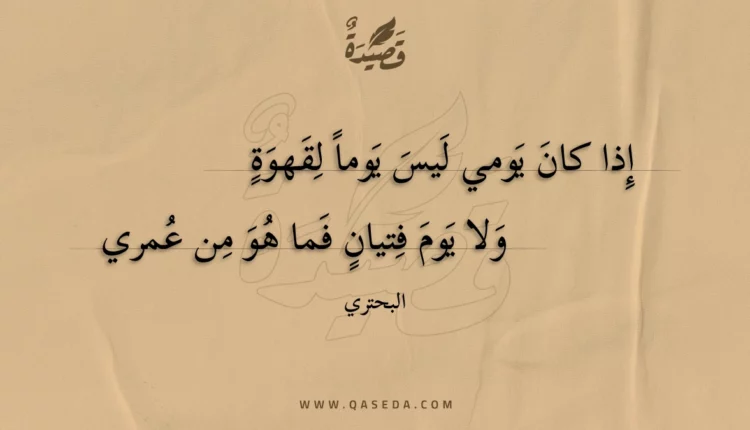 قَصِيدَةٌ
إِذا كانَ يَومي لَيسَ يَوماً لِقَهوَةٍ
وَلا يَومَ فِتيانٍ فَما هُوَ مِن عُمري
البحتري
WWW.QASEDA.COM